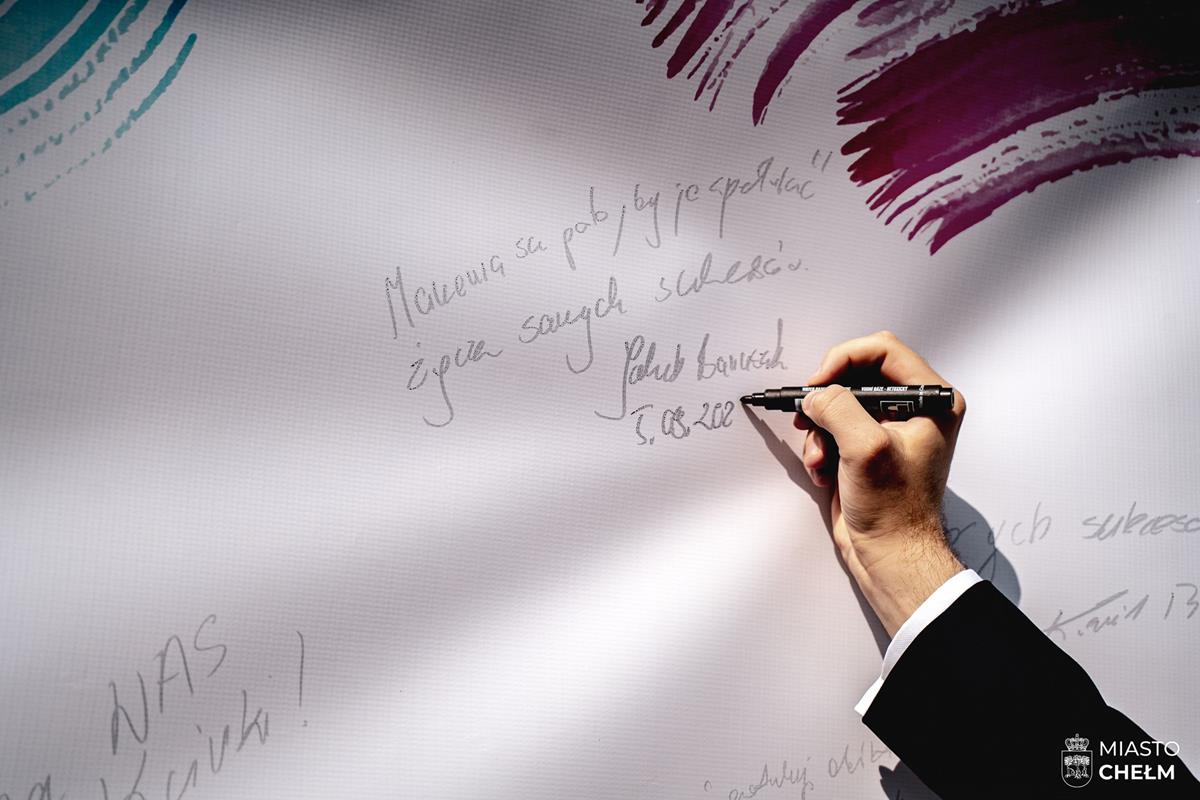 Marzenia są po to, by je spełniać"
życzę samych sukcesów.
Jakub Banaszek
5.08.202
ych sukces
Kamil B
WAS
!
MIASTO
CHEŁM